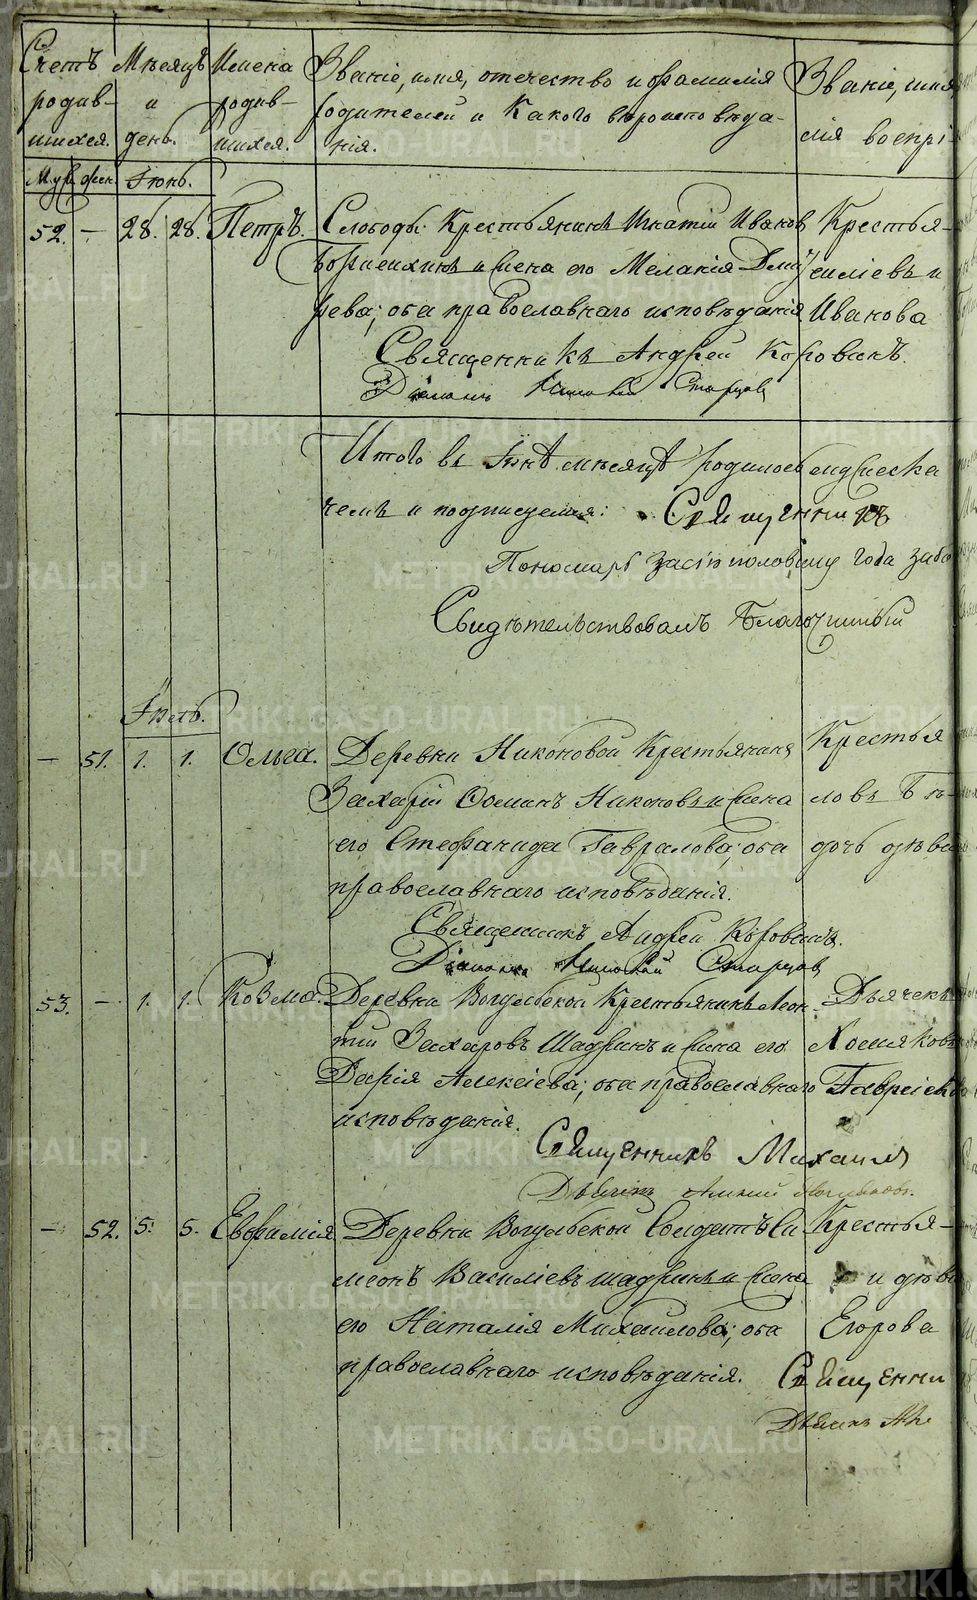 Счетъ родив-шихся.
Мѣсяцъ и день.
Имена родив-шихся.
Званіе, имя, отечество и фамилія
родителей и какого вѣроисповѣда-
нія.
Званіе, имя
лія воспрі-
Муж. жен. Іюнь.
52. — 28. 28. Петръ.
Слободы Крестьянинъ Игнатій Иванов
и жена его Меланія Дмит
рева; оба православнаго исповѣданія
Священникъ Андрей Коровинъ.
Діаконъ Старцов
Крестья-
силіевъ и
Иванова
Итого въ Іюнѣ мѣсяцѣ родилось
чемъ и подписуемся: Священникъ
Пономарь за сію половину года
Свидѣтельствовалъ Благочинный
Іюль.
— 51. 1. 1. Ольга.
Деревни Никоновой Крестьянинъ
Захарій Фоминъ Никоновъ и жена
его Стефанида Гаврилова; оба
православнаго исповѣданія.
Священникъ Андрей Коровинъ.
Діаконъ Старцов
Крестья
ловъ
дочь дѣви
53. — 1. 1. Козма.
Деревни Вогульской Крестьянинъ Леон-
тій Захаровъ Шадринъ и жена его
Дарія Алексіева; оба православнаго
исповѣданія.
Священникъ Михаил
Дьячекъ
Хомяковъ
Гавриіев
— 52. 5. 5. Евфимія
Деревни Вогульской Солдатъ Си
меонъ Василіевъ Шадринъ и жена
его Наталія Михайлова; оба
православнаго исповѣданія.
Крестья-
и дѣви
Егорова
Священни
METRIKI.GASO-URAL.RU